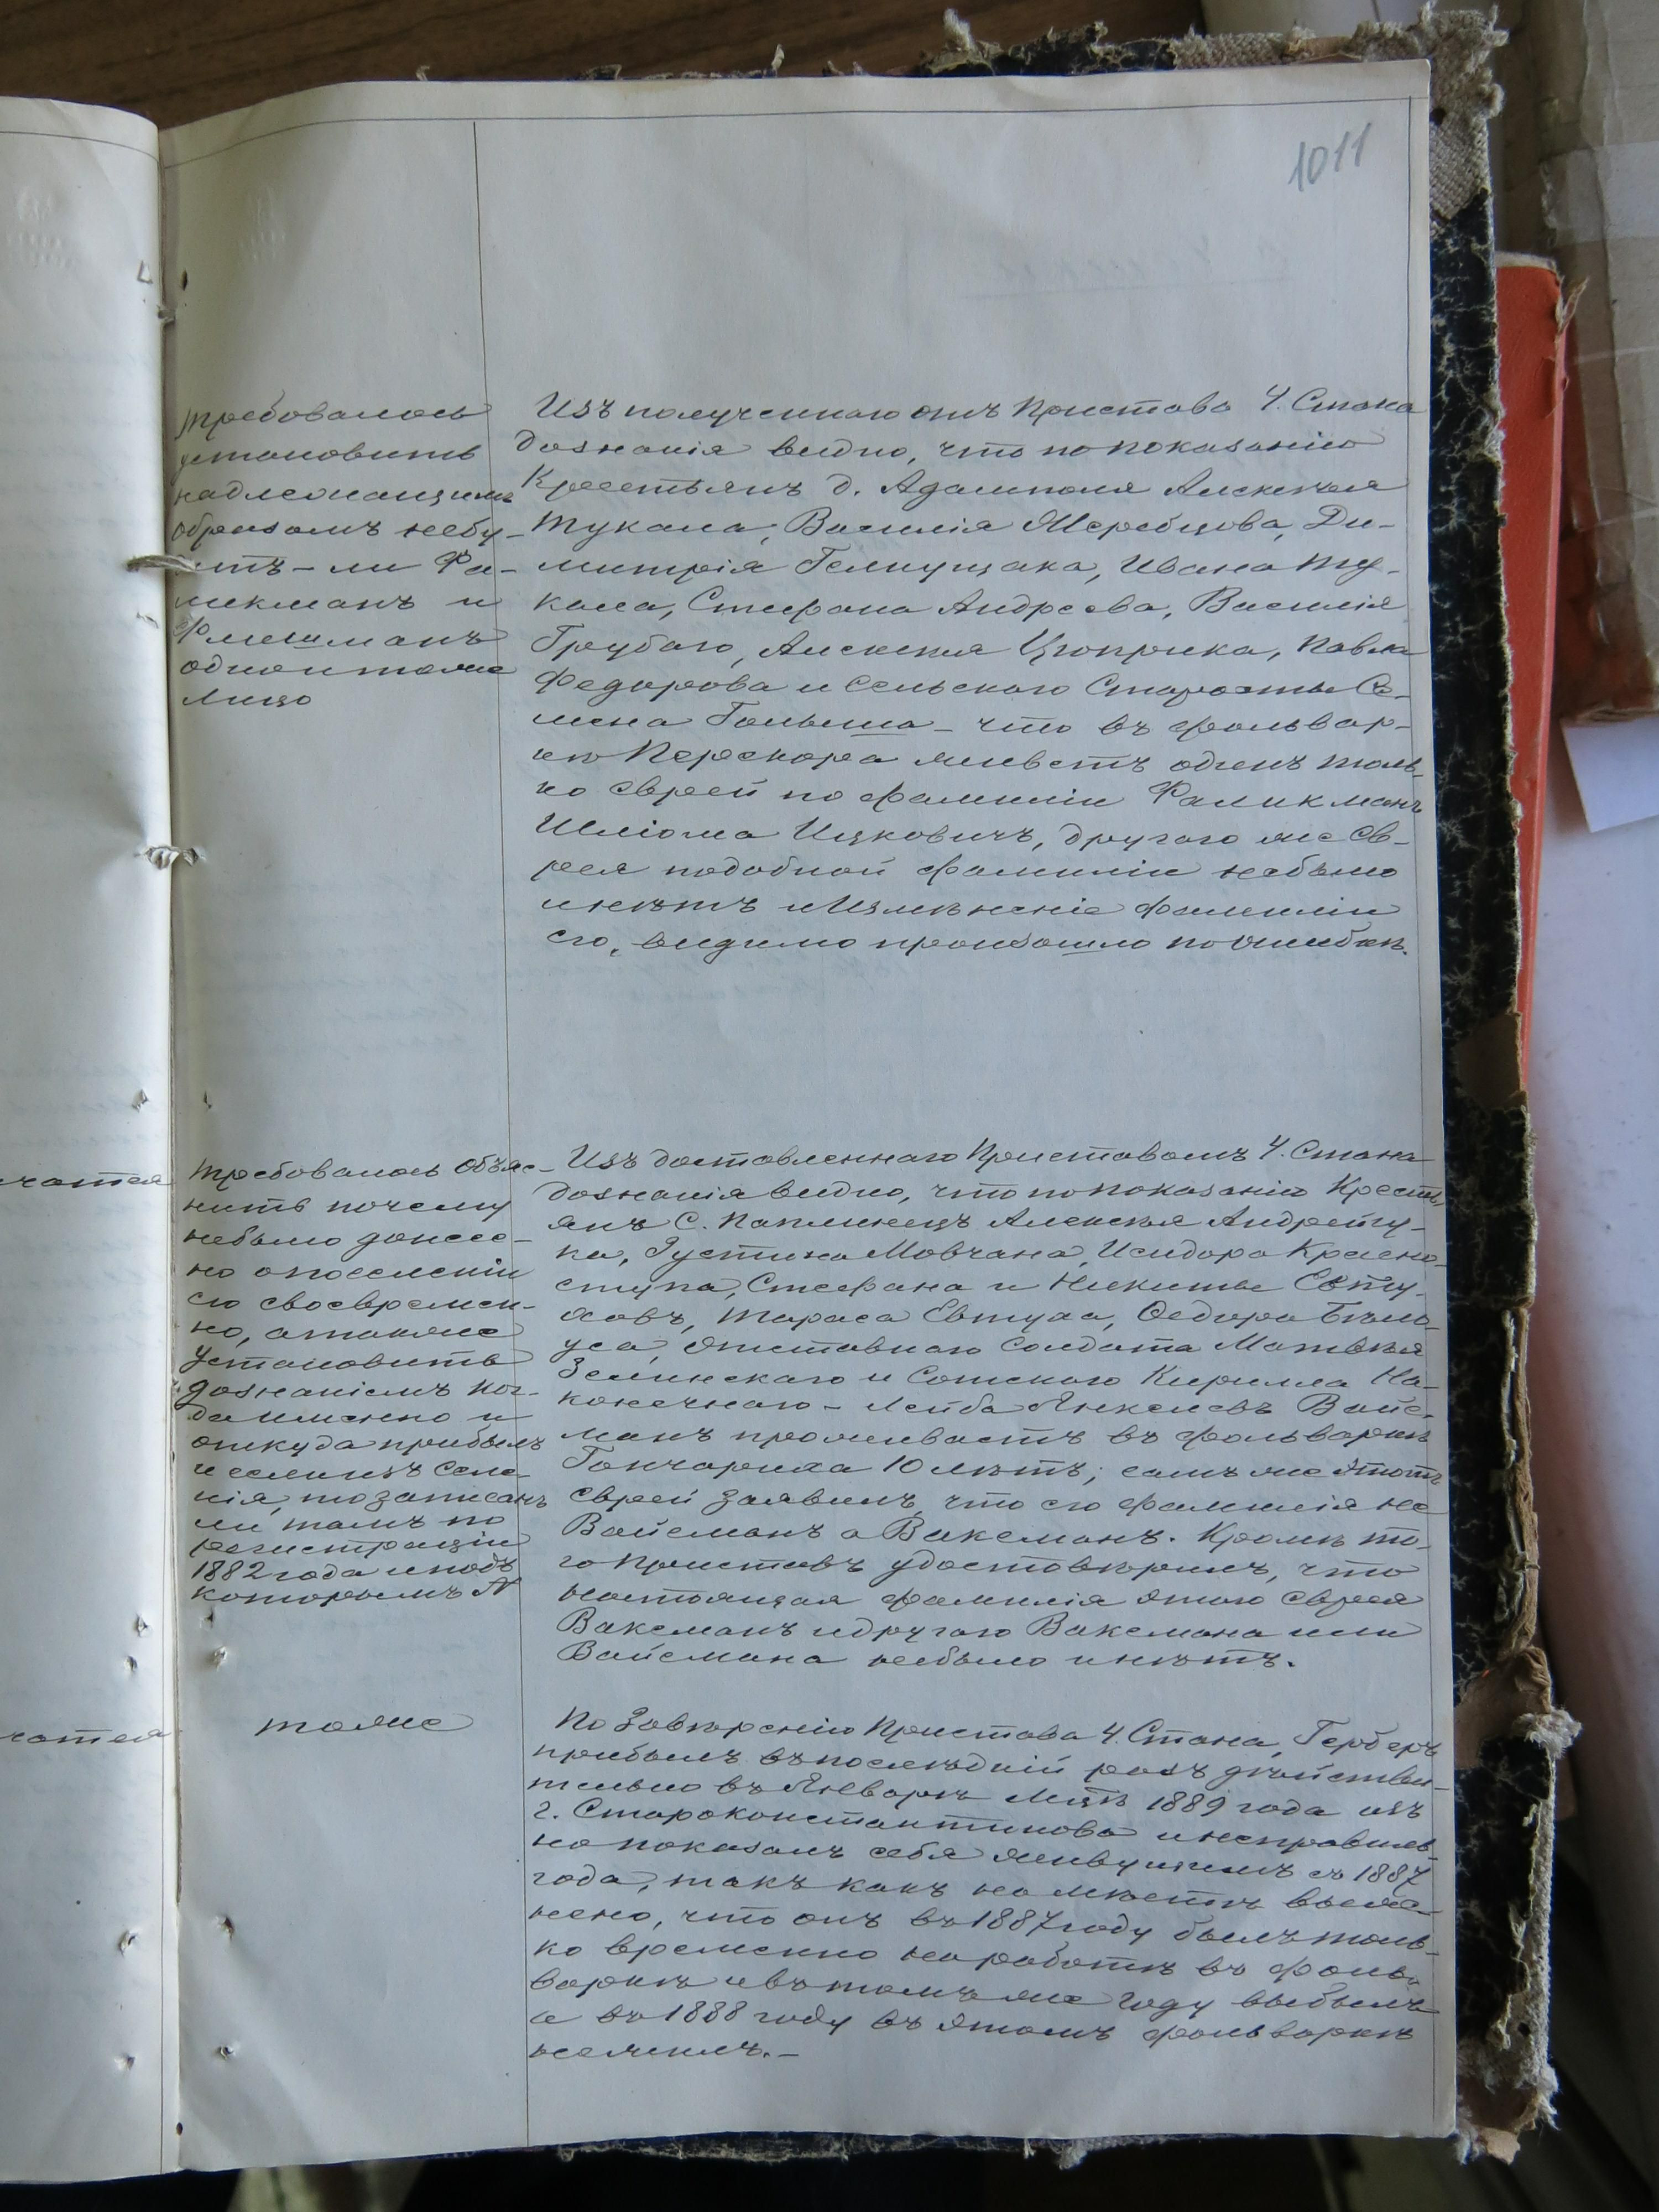 1011
требовалось
установить
надлежащимъ
образомъ небу-
детъ-ли Фа-
ликманъ и
Флешманъ
одно и тоже
лицо
Изъ полученнаго отъ Пристава 4. Стана
дознанія видно, что по показанію
Крестьянъ д. Адамполя Алексея
Тукала, Василія Жеребцова, Ди-
митрія Гемпущака, Ивана Ту-
кала, Стефана Андреева, Василія
Грубаго, Алексея Цюприка, Павла
Федорова и Сельскаго Старосты Се-
мена Гольша - что въ фольвар-
кѣ Перекора живетъ одинъ толь-
ко Еврей по фамиліи Фаликманъ
Шліома Ицковичъ, другаго же Ев-
рея подобной фамиліи небыло
и нѣтъ и Измѣненіе фамиліи
его, видимо произошло по ошибкѣ.
чатся
требовалось объяс-
нить почему
небыло донесе-
но опоселеніи
его своевремен-
но, атакже
Установить
дознаніемъ ког-
да именно и
откуда прибылъ
и если изъ селе-
нія, то записанъ
ли тамъ по
регистраціи
1882 года и подъ
которымъ №
Изъ доставленнаго Приставомъ 4. Стана
дознанія видно, что по показанію Кресть-
янъ С. Паплинецъ Алексея Андрещу-
ка, Густина Мовчана, Исидора Красно-
ступа, Стефана и Никиты Евту-
ховъ, Тараса Евтуха, Федора Бѣло-
уса, Отставнаго Солдата Матвѣя
Зелинскаго и Сотскаго Кирилла На-
конечнаго - Лейба Янкелевъ Вайс-
манъ проживаетъ въ фольваркѣ
Гончариха 10 лѣтъ; самъ же этотъ
еврей заявилъ, что его фамилія не
Вайсманъ а Ваксманъ. Кромѣ то-
го Приставъ удостовѣрилъ, что
настоящая фамилія этого Еврея
Ваксманъ и другаго Ваксмана или
Вайсмана небыло и нѣтъ.
чатся
тоже
По Завѣренію Пристава 4. Стана, Герберъ
прибылъ въ послѣдній разъ дѣйстви-
тельно въ Январѣ Мцѣ 1889 года изъ
г. Староконстантинова и неправиль-
но показалъ себя живущимъ съ 1887
года, такъ какъ на мѣстѣ выяс-
нено, что онъ въ 1887 году былъ толь-
ко временно на работѣ въ фоль-
варкѣ и въ томъ же году выбылъ
а въ 1888 году въ этомъ фольваркѣ
не жилъ. -